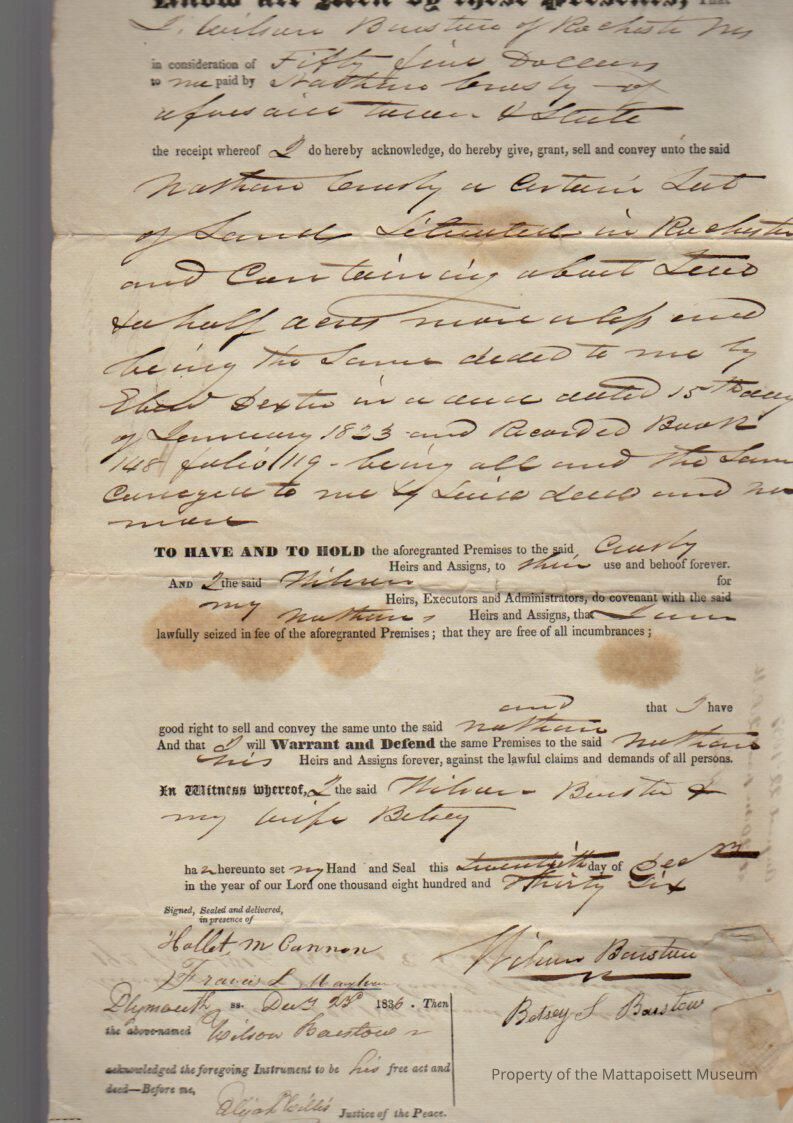 Know all Men by these Presents, That
I Wilson Barstow of Rochester
in consideration of Fifty five Dollars
to me paid by Nathan Crusby of
aforesaid town & State
the receipt whereof I do hereby acknowledge, do hereby give, grant, sell and convey unto the said
Nathan Crusby a Certain Lot
of Land Situated in Rochester
and Containing about Two
& a half acres more or less and
being the Same deded to me by
Eben Dexter in a deed dated 15th day
of January 1823 and Recorded Book
148 folio 119 - being all and the Same
Conveyed to me by Said deed and no
more
TO HAVE AND TO HOLD the aforegranted Premises to the said Crusby
Heirs and Assigns, to their use and behoof forever.
AND I the said Wilson for
my Heirs, Executors and Administrators, do covenant with the said
Nathan s Heirs and Assigns, that I am
lawfully seized in fee of the aforegranted Premises; that they are free of all incumbrances;
and that I have
good right to sell and convey the same unto the said Nathan
And that I will Warrant and Defend the same Premises to the said Nathan
his Heirs and Assigns forever, against the lawful claims and demands of all persons.
In Witness whereof, I the said Wilson Barstow &
my wife Betsey
ha hereunto set my Hand and Seal this twentieth day of Decm
in the year of our Lord one thousand eight hundred and Thirty Six
Signed, Sealed and delivered,
in presence of
Hallet M Cannon
Francis L Mayhew
Wilson Barstow
Betsey L Barstow
Plymouth ss. Decr 23d 1836. Then
the above-named Wilson Barstow
acknowledged the foregoing Instrument to be his free act and
deed—Before me,
Elijah Willis Justice of the Peace.
Property of the Mattapoisett Museum